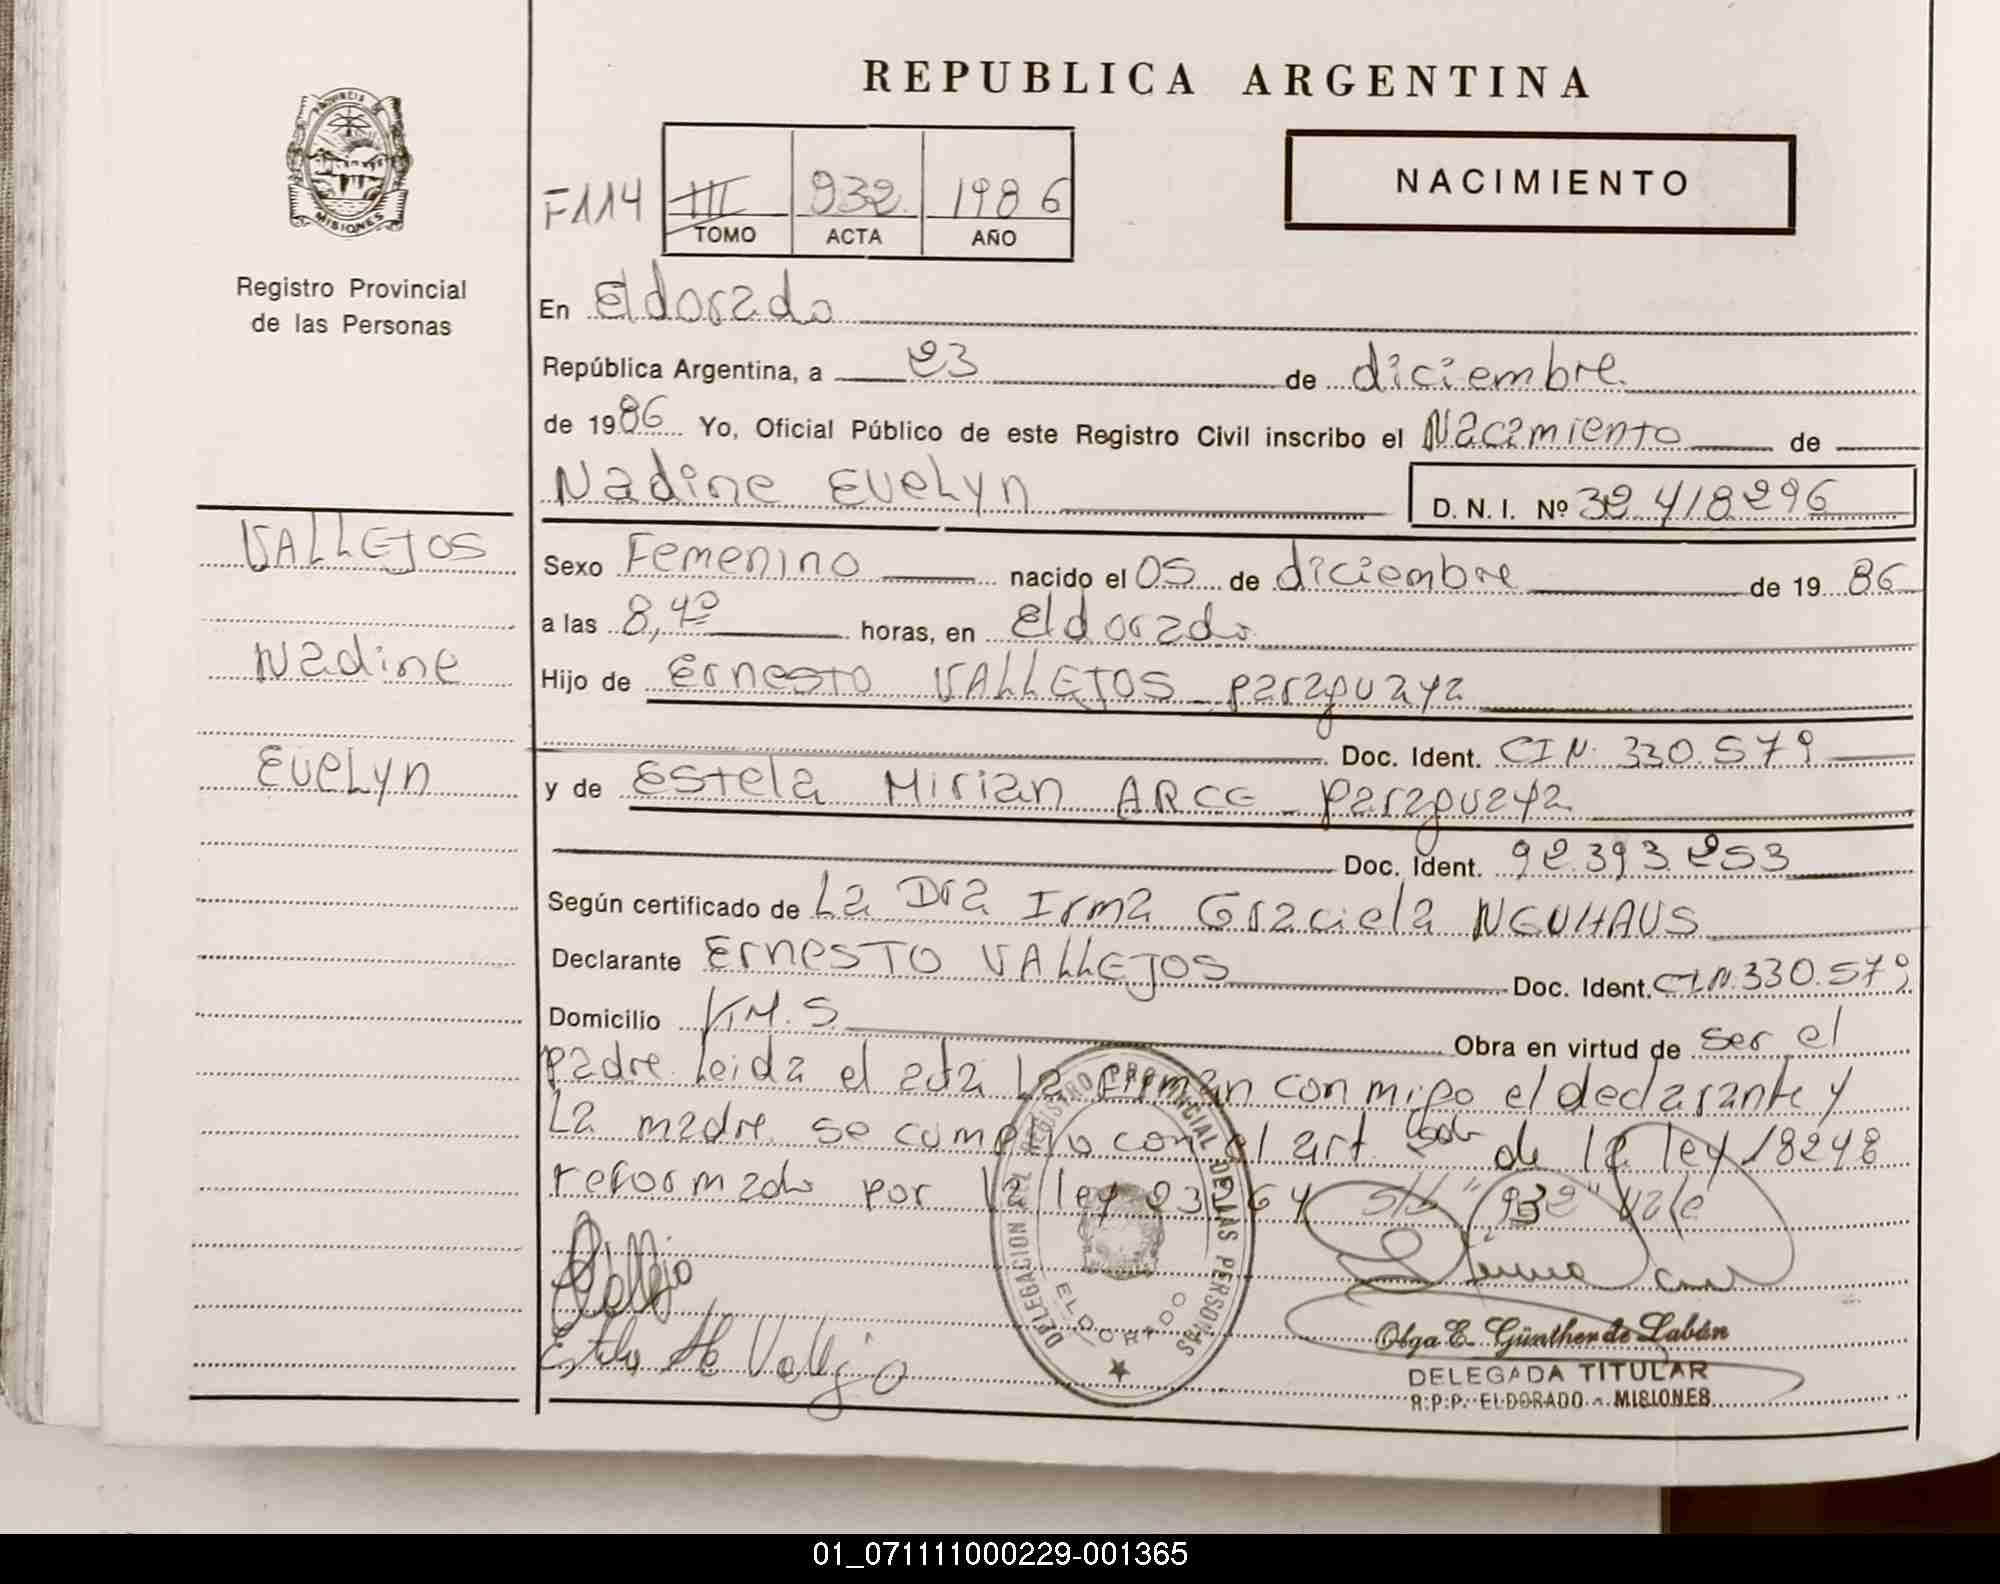 REPUBLICA ARGENTINA
PROVINCIA DE
MISIONES
Registro Provincial
de las Personas
NACIMIENTO
F114 III 932 1986
TOMO ACTA AÑO
En Eldorado
República Argentina, a 23 de diciembre
de 1986 Yo, Oficial Público de este Registro Civil inscribo el Nacimiento de
Nadine Evelyn
D. N. I. Nº 32418296
VALLEJOS
Nadine
Evelyn
Sexo Femenino nacido el 05 de diciembre de 1986
a las 8,40 horas, en Eldorado
Hijo de Ernesto VALLEJOS paraguaya
Doc. Ident. CIN. 330.579
y de Estela Mirian ARCE paraguaya
Doc. Ident. 92.393.253
Según certificado de La Dra Irma Graciela NEUHAUS
Declarante Ernesto VALLEJOS Doc. Ident. CIN.330.579
Domicilio KM.5 Obra en virtud de ser el
padre Leida el acta La Firman conmigo el declarante y
La madre se cumplio con el art. de la ley 18248
reformado por la ley 23 64 s/b "932" Vale
DELEGACION DEL REGISTRO PROVINCIAL DE LAS PERSONAS
ELDORADO
Olga E. Günther de Labán
DELEGADA TITULAR
R.P.P. ELDORADO - MISIONES
01_071111000229-001365